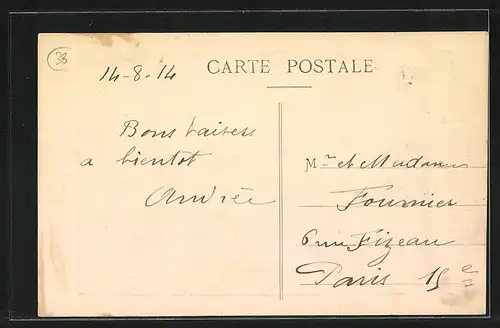 38
CARTE POSTALE
14-8-14
Bons baisers
a bientot
Andrée
Mr et Madame
Fournier
6 rue Fizeau
Paris 15e